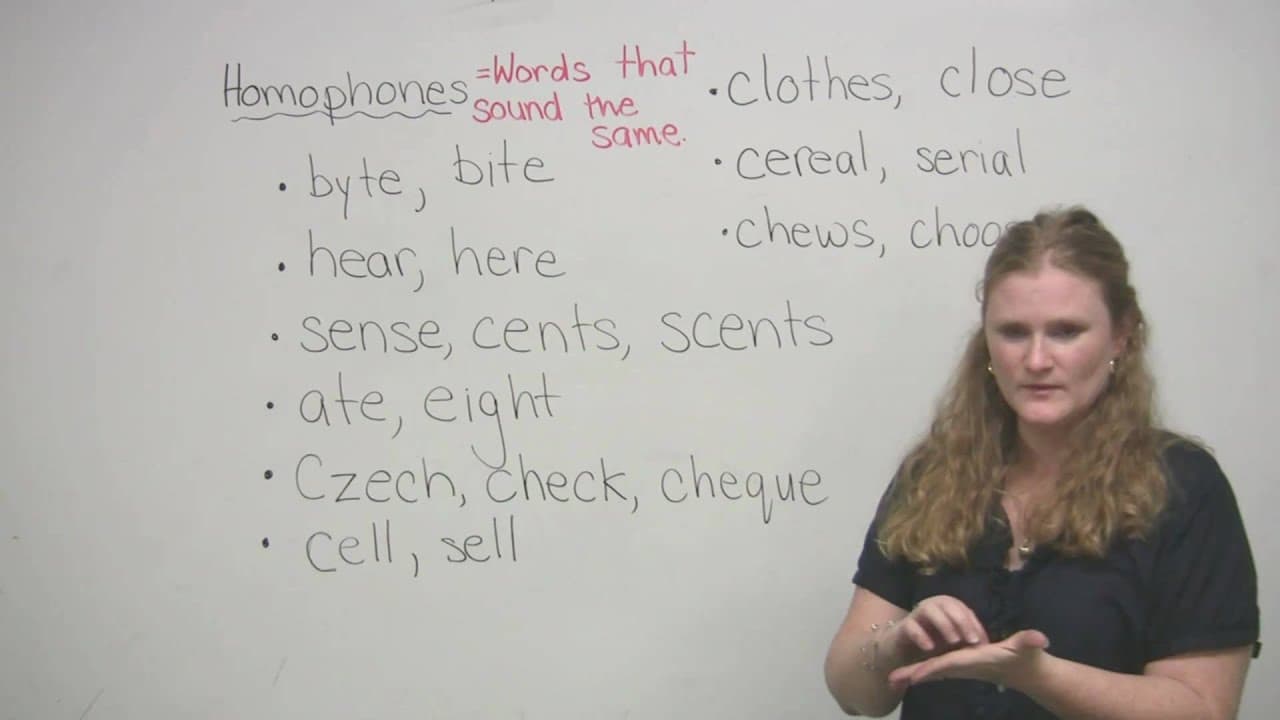 Homophones =Words that
sound the
same.
• byte, bite
• hear, here
• sense, cents, scents
• ate, eight
• Czech, check, cheque
• cell, sell
• clothes, close
• cereal, serial
• chews,